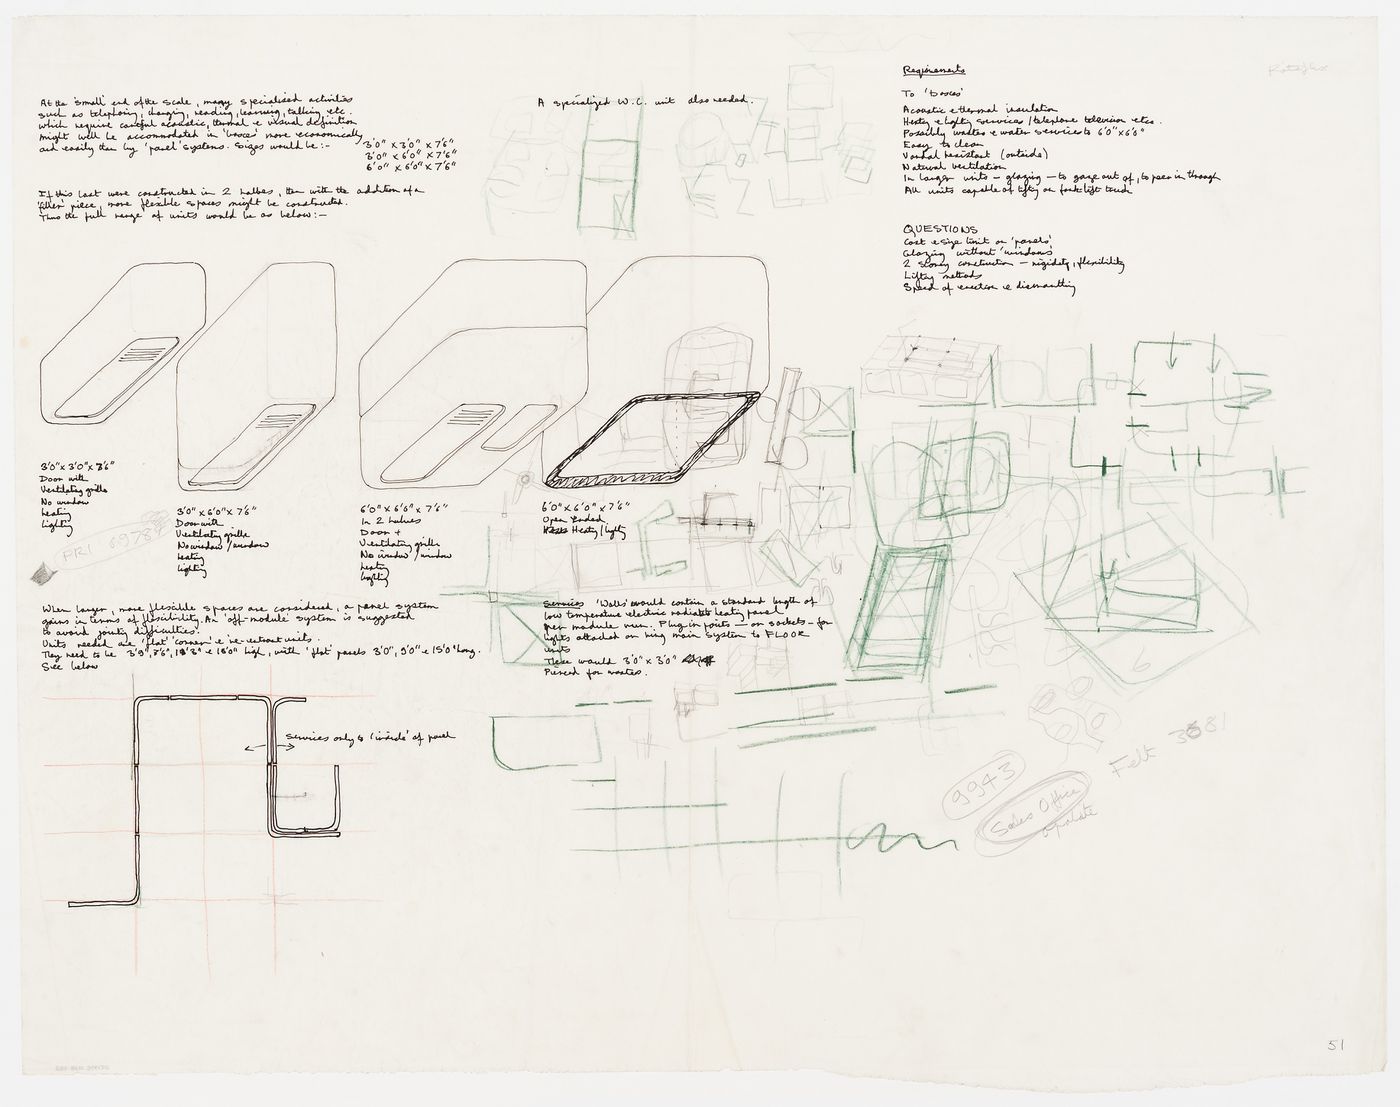 At the 'small' end of the scale, many specialised activities
such as telephoning, changing, reading, learning, talking, etc.
which require careful acoustic, thermal & visual definition
might well be accommodated in 'boxes' more economically
and easily than by 'panel' systems. Sizes would be :-
3'0" x 3'0" x 7'6"
3'0" x 6'0" x 7'6"
6'0" x 6'0" x 7'6"
If this last were constructed in 2 halves, then with the addition of a
'filler' piece, more flexible spaces might be constructed.
Thus the full range of units would be as below :-
A specialized W.C. unit also needed.
Requirements
To 'boxes'
Acoustic & thermal insulation
Heating & lighting services / telephone television etc.
Possibly wastes & water services to 6'0" x 6'0"
Easy to clean
Vandal resistant (outside)
Natural ventilation
In larger units - glazing - to gaze out of, to peer in through
All units capable of lifting on fork lift truck
QUESTIONS
Cost & size limit on 'panels'
Glazing without 'windows'
2 storey construction - rigidity, flexibility
Lifting methods
Speed of erection & dismantling
3'0" x 3'0" x 7'6"
Door with
Ventilating grille
No window
heating
lighting
3'0" x 6'0" x 7'6"
Door with
Ventilating grille
No window / window
heating
lighting
6'0" x 6'0" x 7'6"
In 2 halves
Door +
Ventilating grille
No window / window
heating
lighting
6'0" x 6'0" x 7'6"
Open Ended
Heating / lighting
PRI 6978
When larger, more flexible spaces are considered, a panel system
gains in terms of flexibility. An 'off-module' system is suggested
to avoid jointing difficulties.
Units needed are 'flat' 'corner' & 're-entrant' units.
They need to be 3'9", 7'6", 11'3" & 15'0" high, with 'flat' panels 3'0", 9'0" & 15'0" long.
See below
Services 'Walls' would contain a standard length of
low temperature electric radiated heating panel
per module run. Plug in points - on sockets - for
lights attached on ring main system to FLOOR
units
These would 3'0" x 3'0"
Pierced for wastes.
services only to 'inside' of panel
9943
Sales Office
update
Felt 3681
51